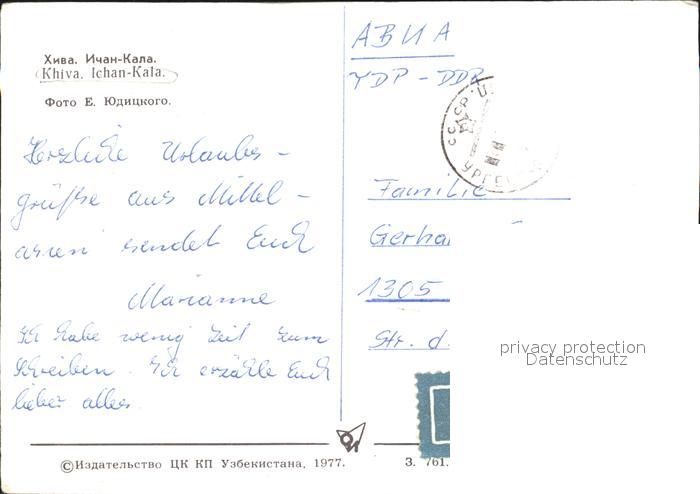 Хива. Ичан-Кала.
Khiva. Ichan-Kala.
Фото Е. Юдицкого.
Herzliche Urlaubs-
grüße aus Mittel-
asien sendet Euch
Marianne
Ich habe wenig Zeit zum
Schreiben. Ich erzähle Euch
lieber alles.
АВИА
ГДР - DDR
СССР
УРГЕН
Familie
Gerha
1305
Str. d.
privacy protection
Datenschutz
©Издательство ЦК КП Узбекистана, 1977.
З. 761.